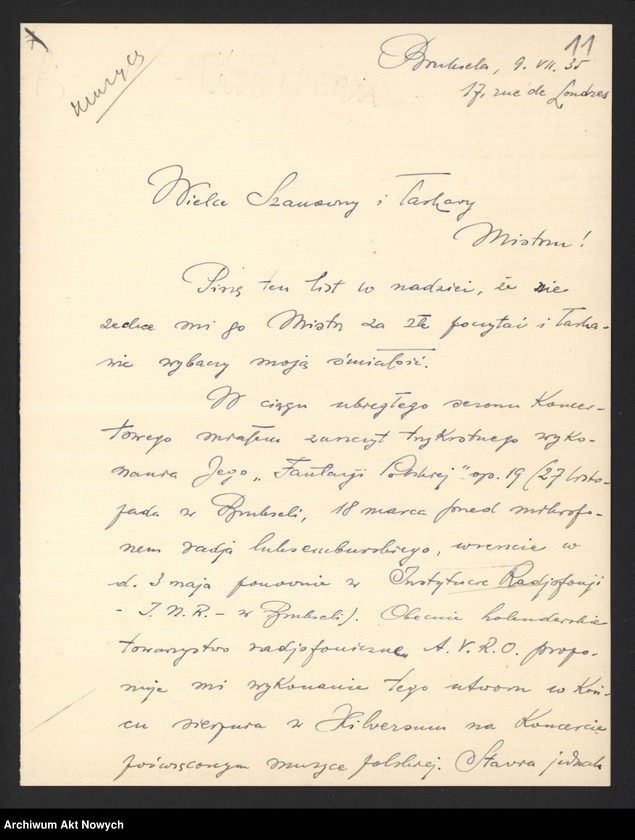 11
muzycy
Bruksela, 9. VII. 35
17, rue de Londres
Wielce Szanowny i Łaskawy
Mistrzu!
Piszę ten list w nadziei, że nie
zechce mi go Mistrz za złe poczytać i łaska-
wie wybaczy moją śmiałość.
W ciągu ubiegłego sezonu koncer-
towego miałem zaszczyt trzykrotnego wyko-
nania Jego „Fantazji Polskiej" op. 19 (27 listo-
pada w Brukseli, 18 marca przed mikrofo-
nem radja luksemburskiego, wreszcie w
d. 3 maja ponownie w Instytucie Radjofonji
- I. N. R. - w Brukseli). Obecnie holenderskie
towarzystwo radjofoniczne A. V. R. O. propo-
nuje mi wykonanie tego utworu w koń-
cu sierpnia w Hilversum na koncercie
poświęconym muzyce polskiej. Stawia jednak
Archiwum Akt Nowych